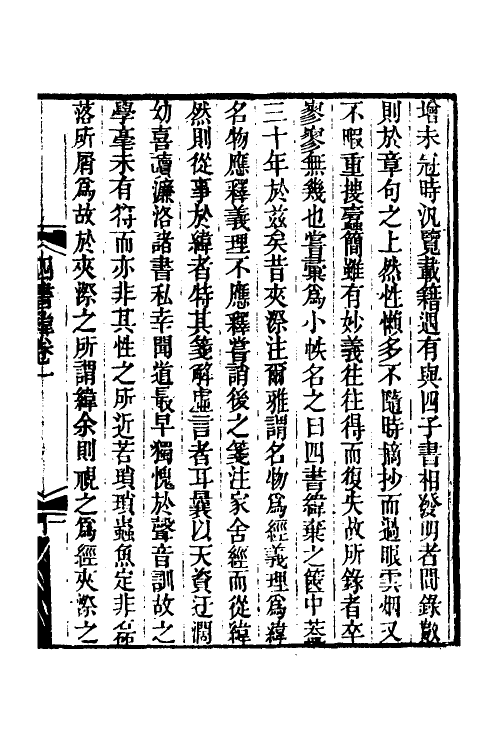 增未冠時汎覽載籍遇有與四子書相發明者間錄數
則於章句之上然性懶多不隨時摘抄而過眼雲烟又
不暇重搜蠧簡雖有妙義往往得而復失故所錄者卒
寥寥無幾也嘗彙爲小帙名之曰四書緯棄之篋中葢
三十年於兹矣昔夾漈注爾雅謂名物爲經義理爲緯
名物應釋義理不應釋嘗謂後之箋注家舍經而從緯
然則從事於緯者特其箋解虛言者耳曩以天資迂濶
幼喜讀濂洛諸書私幸聞道最早獨愧於聲音訓故之
學毫未有得而亦非其性之所近若瑣瑣蟲魚定非磊
落所屑爲故於夾漈之所謂緯余則視之爲經夾漈之
四書緯卷一